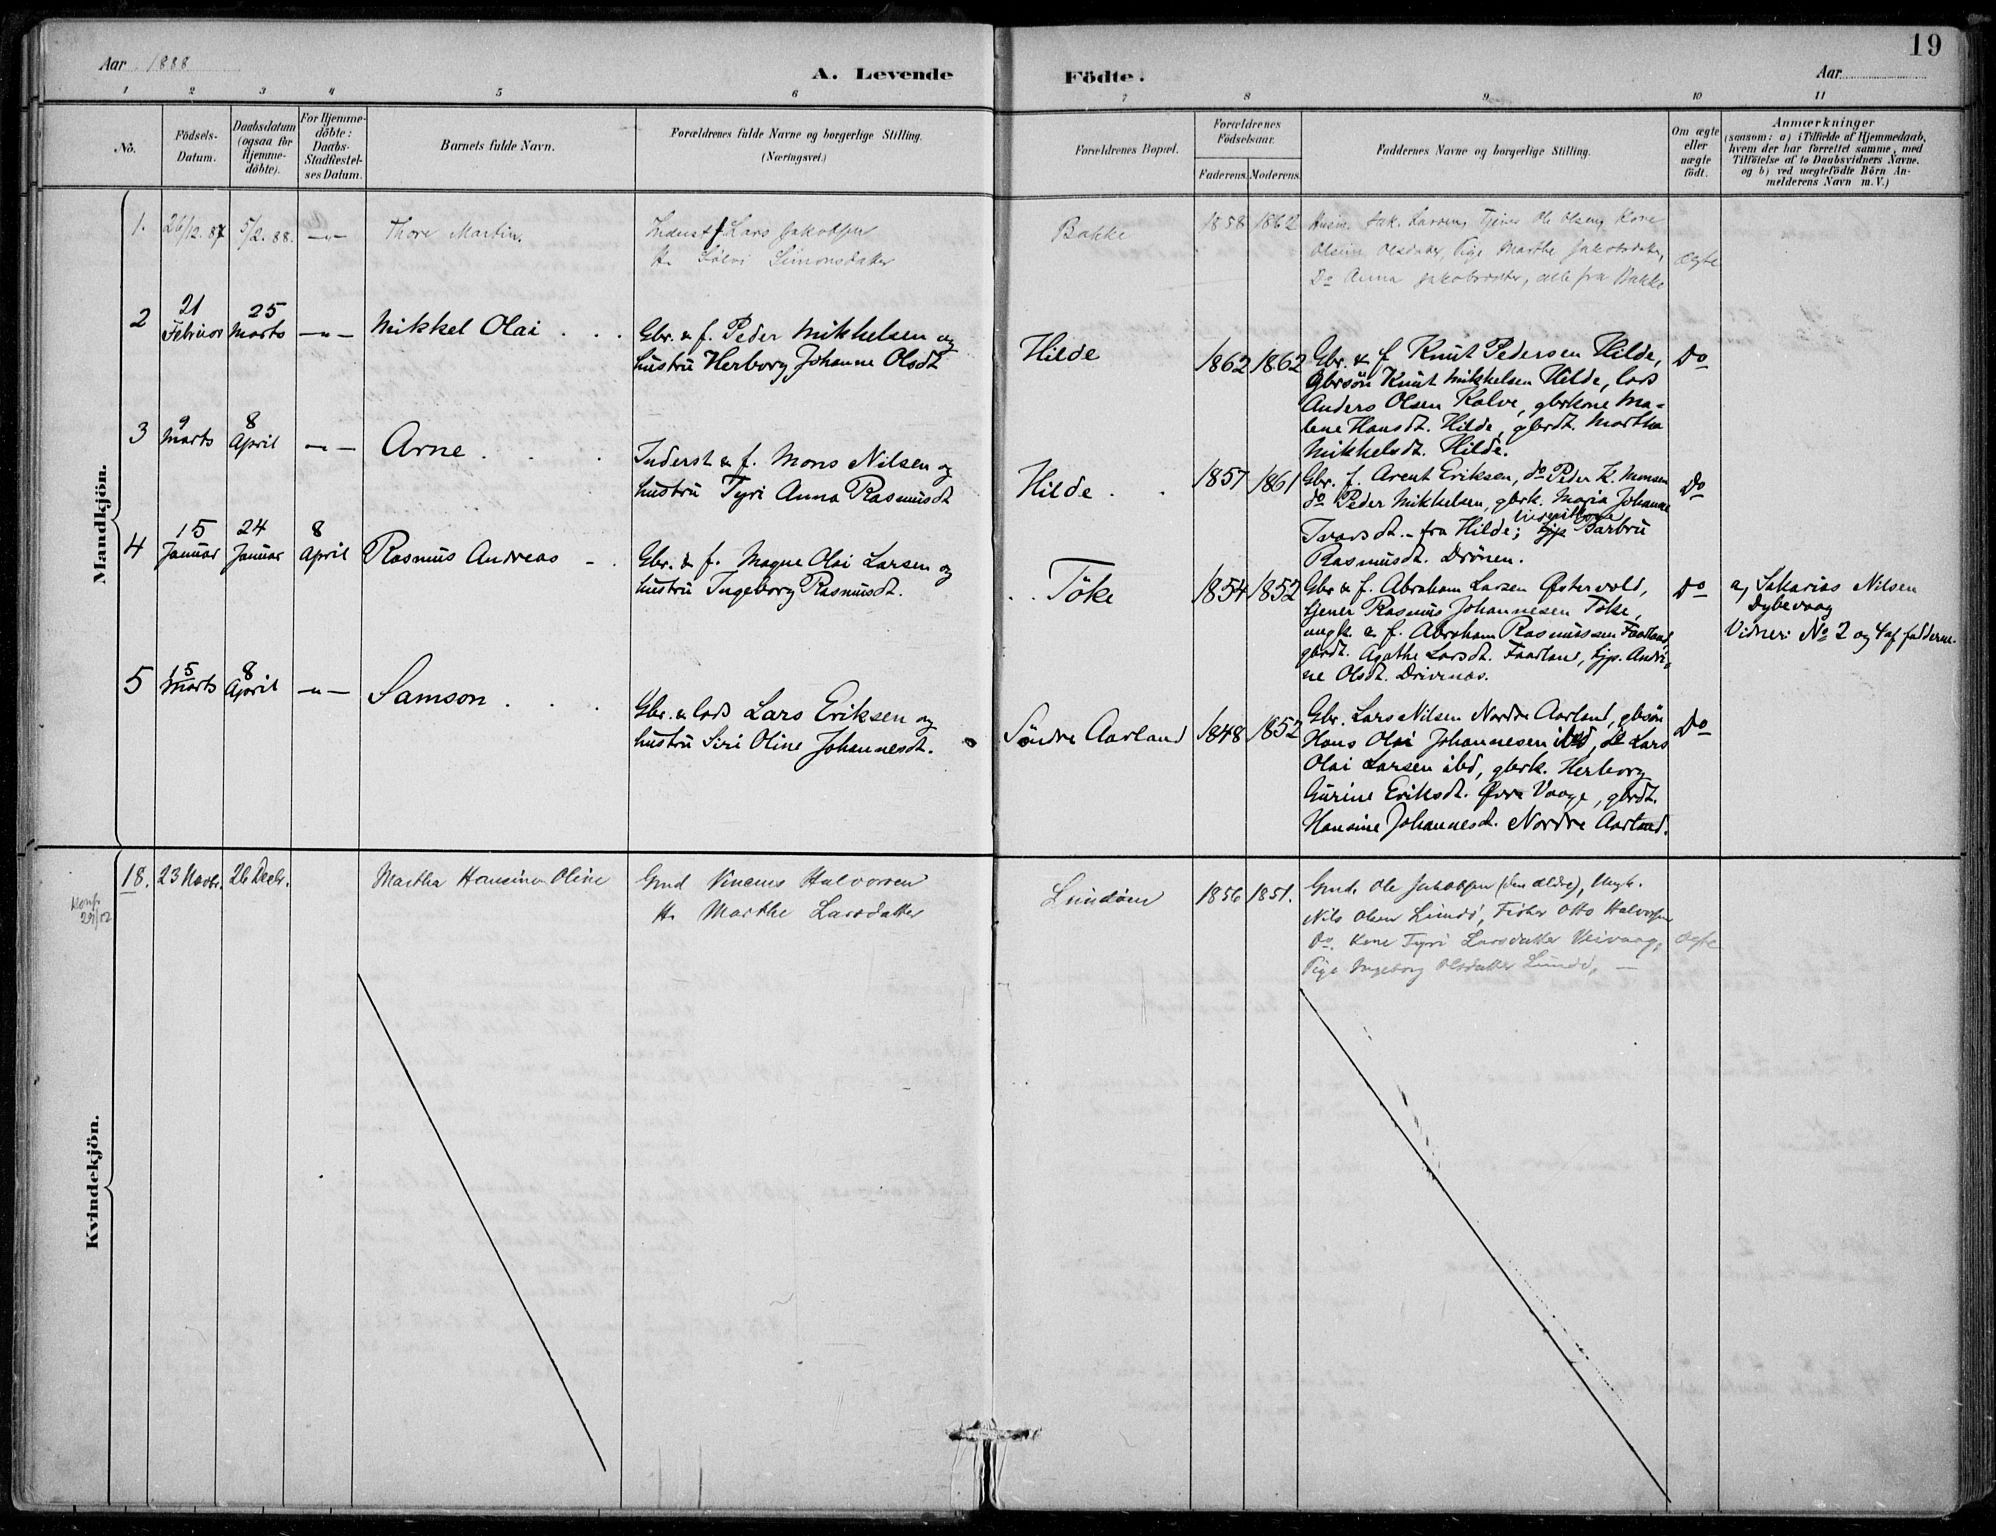 19
Aar 1888
A. Levende
Födte.
Aar
1 2 3 4 5 6 7 8 9 10 11
No.
Födsels-
Datum.
Daabsdatum
(ogsaa for
Hjemme-
döbte).
For Hjemme-
döbte:
Daabs-
Stadfæstel-
ses Datum.
Barnets fulde Navn.
Forældrenes fulde Navne og borgerlige Stilling.
(Næringsvei.)
Forældrenes Bopæl.
Forældrenes
Födselsaar.
Faderens.
Moderens.
Faddernes Navne og borgerlige Stilling.
Om ægte
eller
uægte
födt.
Anmærkninger
(saasom: a) i Tilfælde af Hjemmedaab,
hvem der har forrettet samme, med
Tilföielse af to Daabsvidners Navne.
og b) ved uægtefödte Börn An-
melderens Navn m.V.)
Mandkjön.
1. 26/12. 87 5/2. 88. -"- Thore Martin.
Inderst f Lars Jakobsen
H. Sølvi Simonsdatter
Bakke
1858 1862
Husm. Jak. Larsen, Tjener Ole Olsen, Kone
Olsdatter, Pige Marthe Jakobsdatter,
Do Anna Jakobsdatter, alle fra Bakke
ægte
2 21 Februar 25 Marts -"- Mikkel Olai
Gbr. & f. Peder Mikkelsen og
hustru Herborg Johanne Olsdt
Hilde
1862 1862
Gbr. & f Knut Pedersen Hilde,
Gbrsön Knut Mikkelsen Hilde, lods
Anders Olsen Kalve, gbrkone Ma-
lene Hansdt. Hilde, gbrdt. Martha
Mikkelsdt. Hilde.
Do
3 9 Marts 8 April -"- Arne
Inderst & f. Mons Nilsen og
hustru Tyri Anna Rasmusdt
Hilde
1857 1861
Gbr. f. Arent Eriksen, do Peder K. Monsen
do Peder Mikkelsen, gbrk. Maria Johanne
Ivarsdt. - fra Hilde; Barbru
Rasmusdt. Drönen.
Do
4 15 Januar 24 Januar 8 April Rasmus Andreas
Gbr. & f. Magne Olai Larsen og
hustru Ingeborg Rasmusdt.
Töke
1854 1852
Gbr & f. Abraham Larsen Østervold,
tjener Rasmus Johannesen Töke,
ungk. & f. Abraham Rasmussen Faarland,
gbrdt. Agathe Larsdt. Faarland, tjp. Andri-
ne Olsdt. Drivenes.
Do
a, Sakarias Nilsen
Dybevaag
Vidner: No 2 og 4 af fadderne.
5 15 Marts 8 April -"- Samson
Gbr. & lods Lars Eriksen og
hustru Siri Oline Johannesdt.
Söndre Aarland
1848 1852
Gbr. Lars Nilsen Nordre Aarland, gbrsön
Hans Olai Johannesen ibd, do Lars
Olai Larsen ibd, gbrk. Herborg
Gurine Eriksdt. Övre Vaage, gbrdt.
Hansine Johannesdt. Nordre Aarland.
Do
Kvindekjön.
Konf.
29/02
18. 23 Novbr. 26 Decbr. Martha Hansine Oline
Gmd Vincens Halvorsen
H. Marthe Larsdatter
Lundöen
1856 1851.
Gmd. Ole Jakobsen (den ældre), Ungk.
Nils Olsen Lundö, Fisker Otto Halvorsen
Do. Kone Tyri Larsdatter Veivaag,
Pige Ingeborg Olsdatter Lundö,
ægte